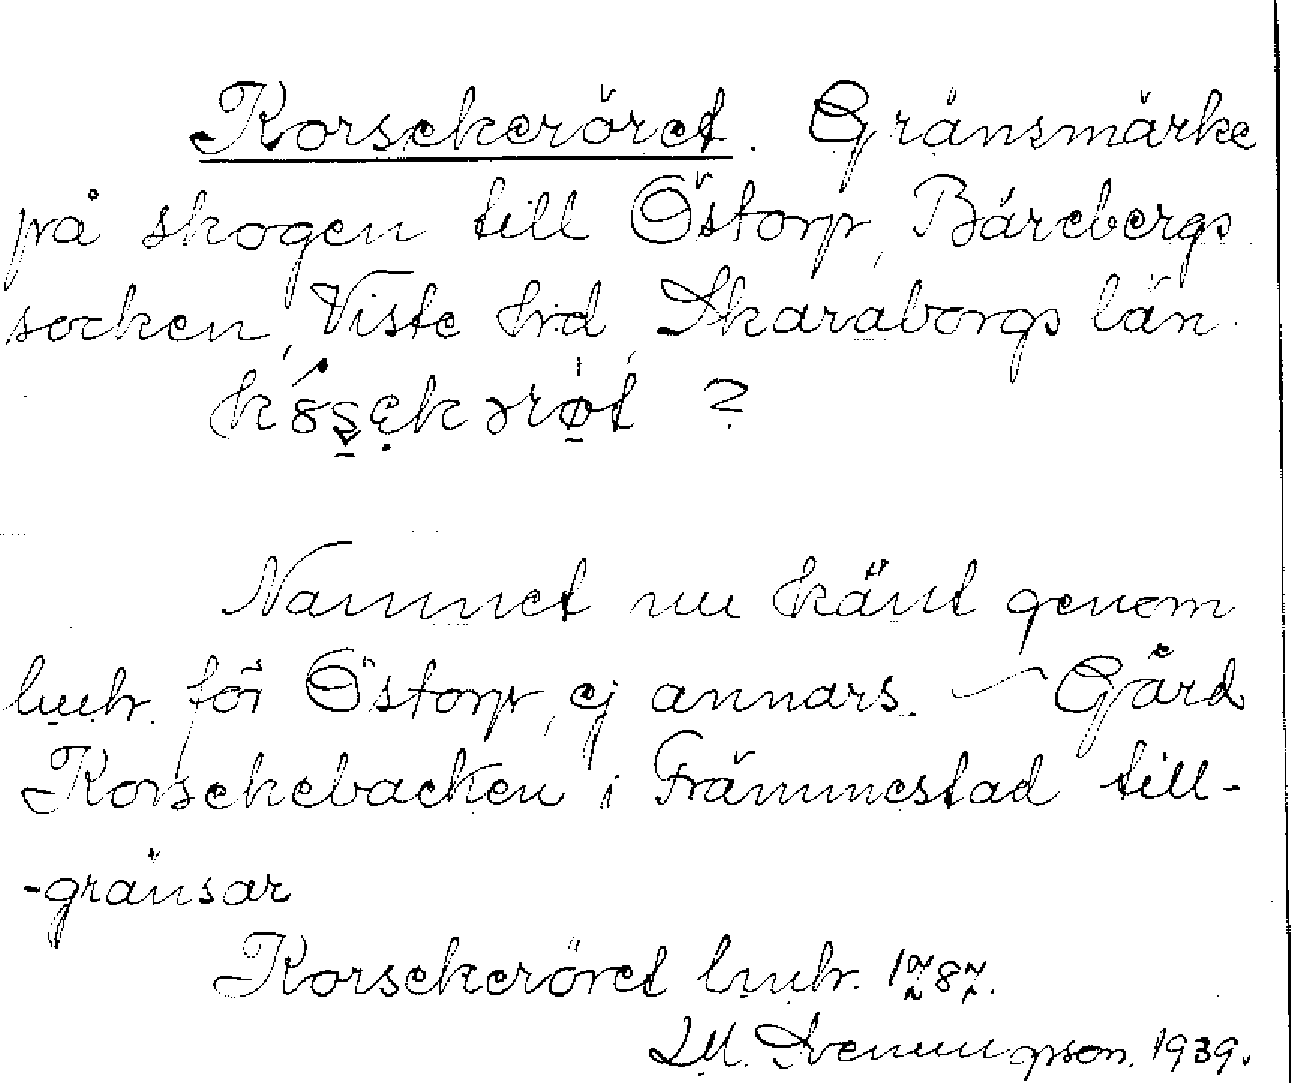 Korsekeröret. Gränsmärke
på skogen till Östorp, Bärebergs
socken, Viste hrd, Skaraborgs län.
?
Namnet nu känt genom
lmhr. för Östorp, ej annars. – Gård
Korsekebacken i Främmestad till-
-gränsar
Korsekeröret lmhr. 1787.
1939.